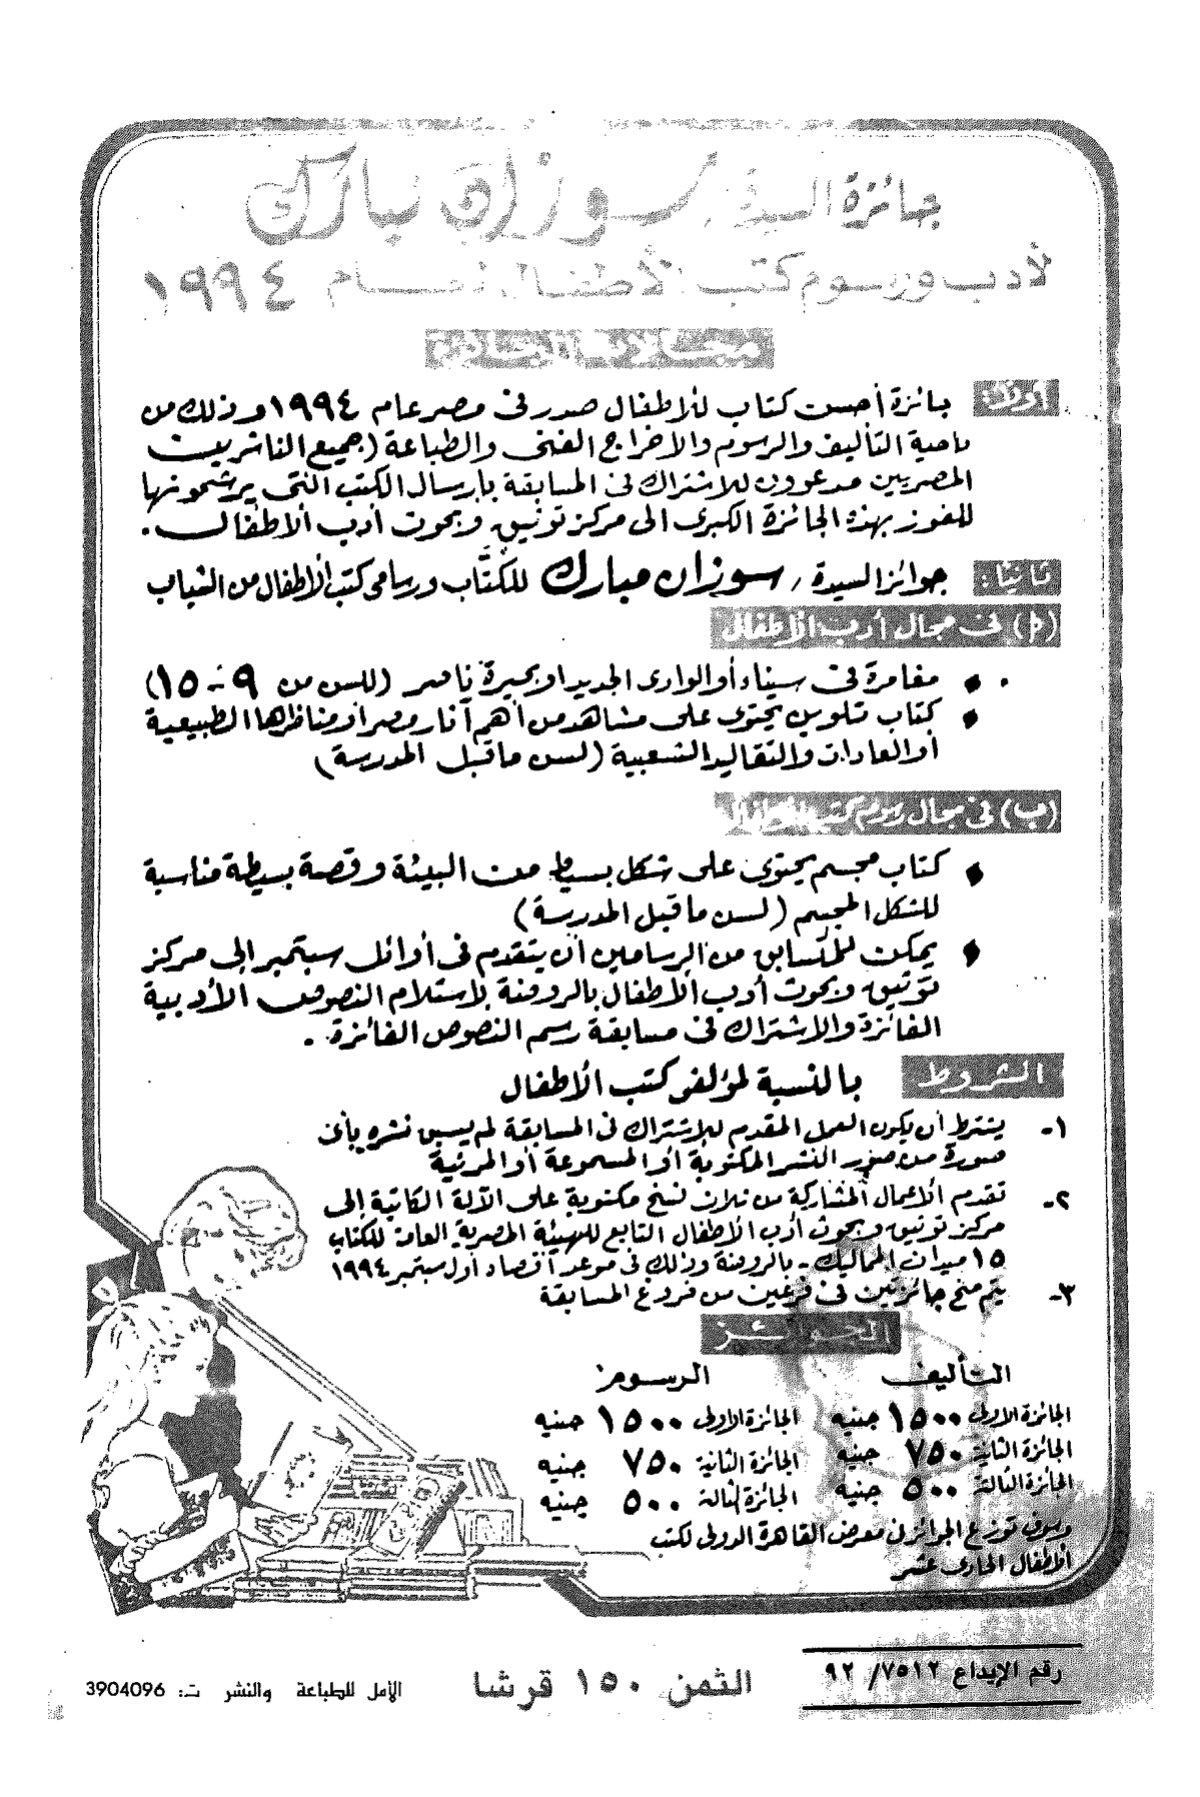 جائزة السيدة / سوزان مبارك
لأدب ورسوم كتب الأطفال لعام ١٩٩٤
مجالات الجائزة
أولاً: جائزة أحسن كتاب للأطفال صدر فى مصر عام ١٩٩٤ وذلك من
ناحية التأليف والرسوم والاخراج الفنى والطباعة (جميع الناشرين
المصريين مدعوون للاشتراك فى المسابقة بارسال الكتب التى يرشحونها
للفوز بهذه الجائزة الكبرى الى مركز توثيق وبحوث أدب الاطفال.
ثانيا: جوائز السيدة / سوزان مبارك للكتّاب ورسامى كتب الأطفال من الشباب
(أ) فى مجال أدب الأطفال
مغامرة فى سيناء أو الوادى الجديد او بحيرة ناصر (للسن من ٩ - ١٥)
كتاب تلوين يحتوى على مشاهد من أهم آثار مصر أو مناظرها الطبيعية
أو العادات والتقاليد الشعبية (لسن ماقبل المدرسة)
(ب) فى مجال رسوم كتب الأطفال
كتاب مجسم يحتوى على شكل بسيط من البيئة وقصة بسيطة مناسبة
للشكل المجسم (لسن ماقبل المدرسة)
يمكن للمتسابق من الرسامين أن يتقدم فى أوائل سبتمبر إلى مركز
توثيق وبحوث أدب الأطفال بالروضة لاستلام النصوص الأدبية
الفائزة والاشتراك فى مسابقة رسم النصوص الفائزة.
الشروط بالنسبة لمؤلفو كتب الأطفال
١- يشترط أن يكون العمل المقدم للاشتراك فى المسابقة لم يسبق نشره بأى
صورة من صور النشر المكتوبة أو المسموعة أو المرئية
٢- تقدم الاعمال المشاركة من ثلاث نسخ مكتوبة على الآلة الكاتبة إلى
مركز توثيق وبحوث أدب الأطفال التابع للهيئة المصرية العامة للكتاب
١٥ ميدان المماليك - بالروضة وذلك فى موعد أقصاه أول سبتمبر ١٩٩٤
٣- يتم منح جائزتين فى فرعين من فروع المسابقة
الجوائز
التأليف الرسوم
الجائزة الاولى ١٥٠٠ جنيه الجائزة الاولى ١٥٠٠ جنيه
الجائزة الثانية ٧٥٠ جنيه الجائزة الثانية ٧٥٠ جنيه
الجائزة الثالثة ٥٠٠ جنيه الجائزة الثالثة ٥٠٠ جنيه
وسوف توزع الجوائز فى معرض القاهرة الدولى لكتب
الأطفال الحادى عشر
رقم الإيداع ٧٥١٢/ ٩٢
الثمن ١٥٠ قرشا
الأمل للطباعة والنشر ت: 3904096